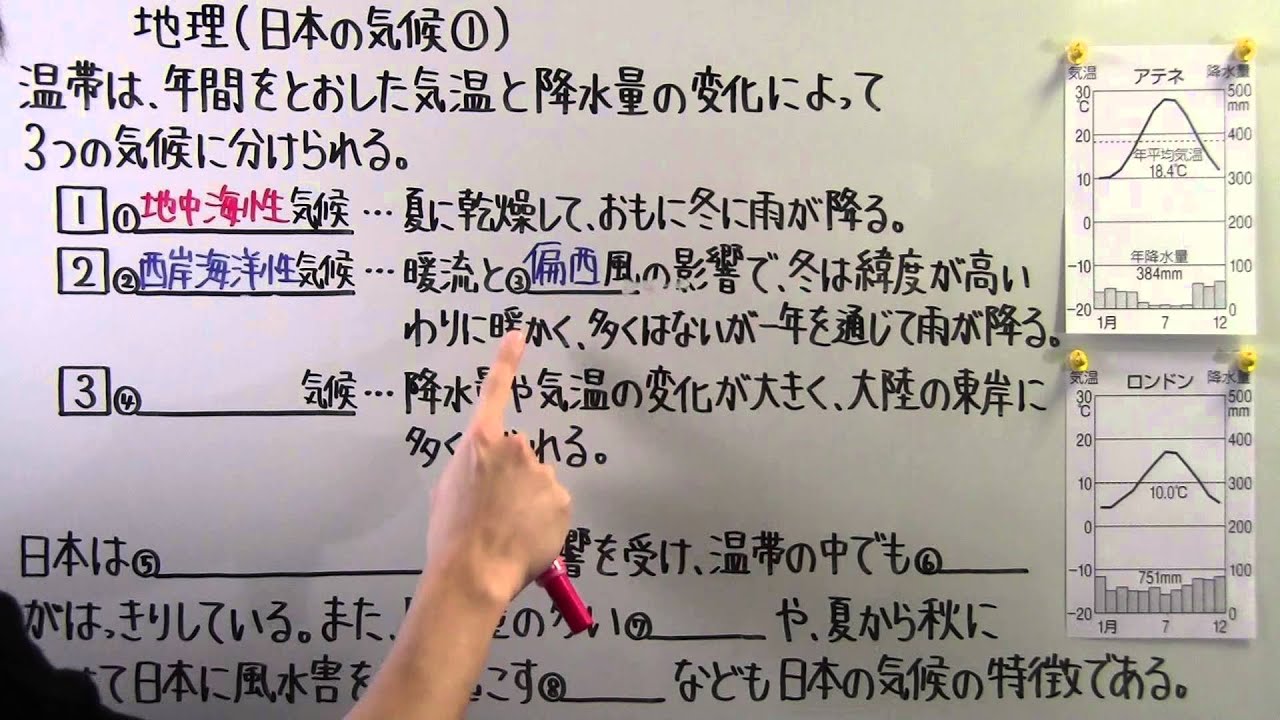 地理(日本の気候①)
温帯は、年間をとおした気温と降水量の変化によって
3つの気候に分けられる。
1 ①地中海性気候 … 夏に乾燥して、おもに冬に雨が降る。
2 ②西岸海洋性気候 … 暖流と③偏西風の影響で、冬は緯度が高い
わりに暖かく、多くはないが一年を通じて雨が降る。
3 ④ 気候 … 降水量や気温の変化が大きく、大陸の東岸に
多く れる。
日本は⑤ 響を受け、温帯の中でも⑥
がはっきりしている。また、 の多い⑦ や、夏から秋に
て日本に風水害を こす⑧ なども日本の気候の特徴である。
気温 アテネ 降水量
30 500
℃ mm
20 400
年平均気温
18.4℃
10 300
0 200
年降水量
-10 384mm 100
-20 0
1月 7 12
気温 ロンドン 降水量
30 500
℃ mm
20 400
10 10.0℃ 300
0 200
-10 751mm 100
-20 0
1月 7 12